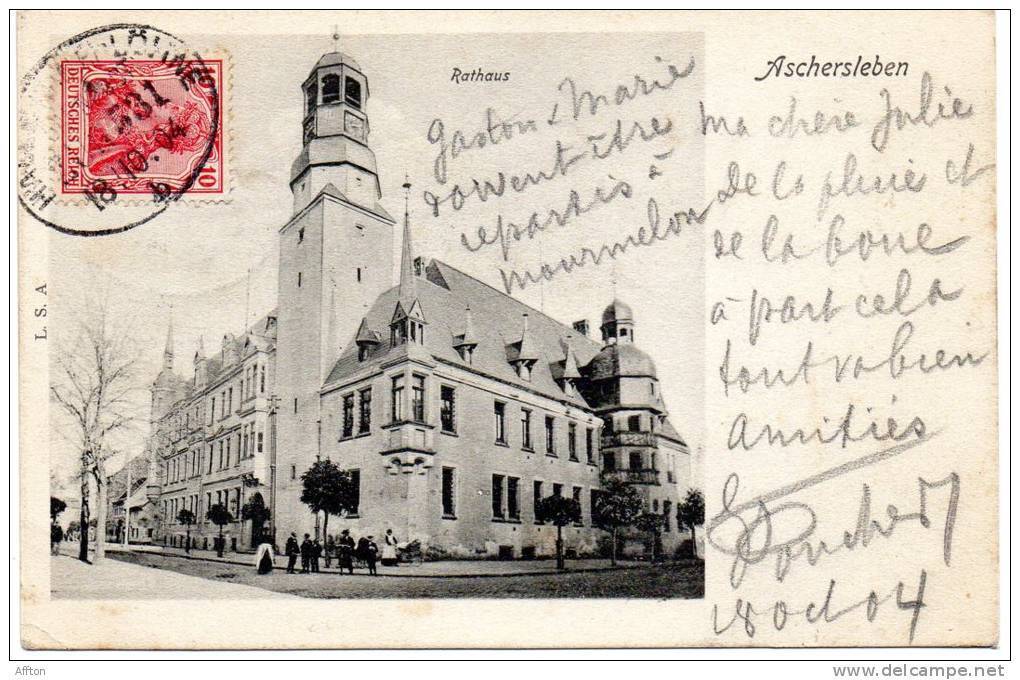 Rathaus
Aschersleben
L. S. A
DEUTSCHES REICH
10
18.10.04
b
Gaston & Marie
doivent être
repartis à
mourmelon
ma chère Julie
De la pluie et
de la boue
à part cela
tout va bien
amitiés
18 Oct 04
Affton
www.delcampe.net